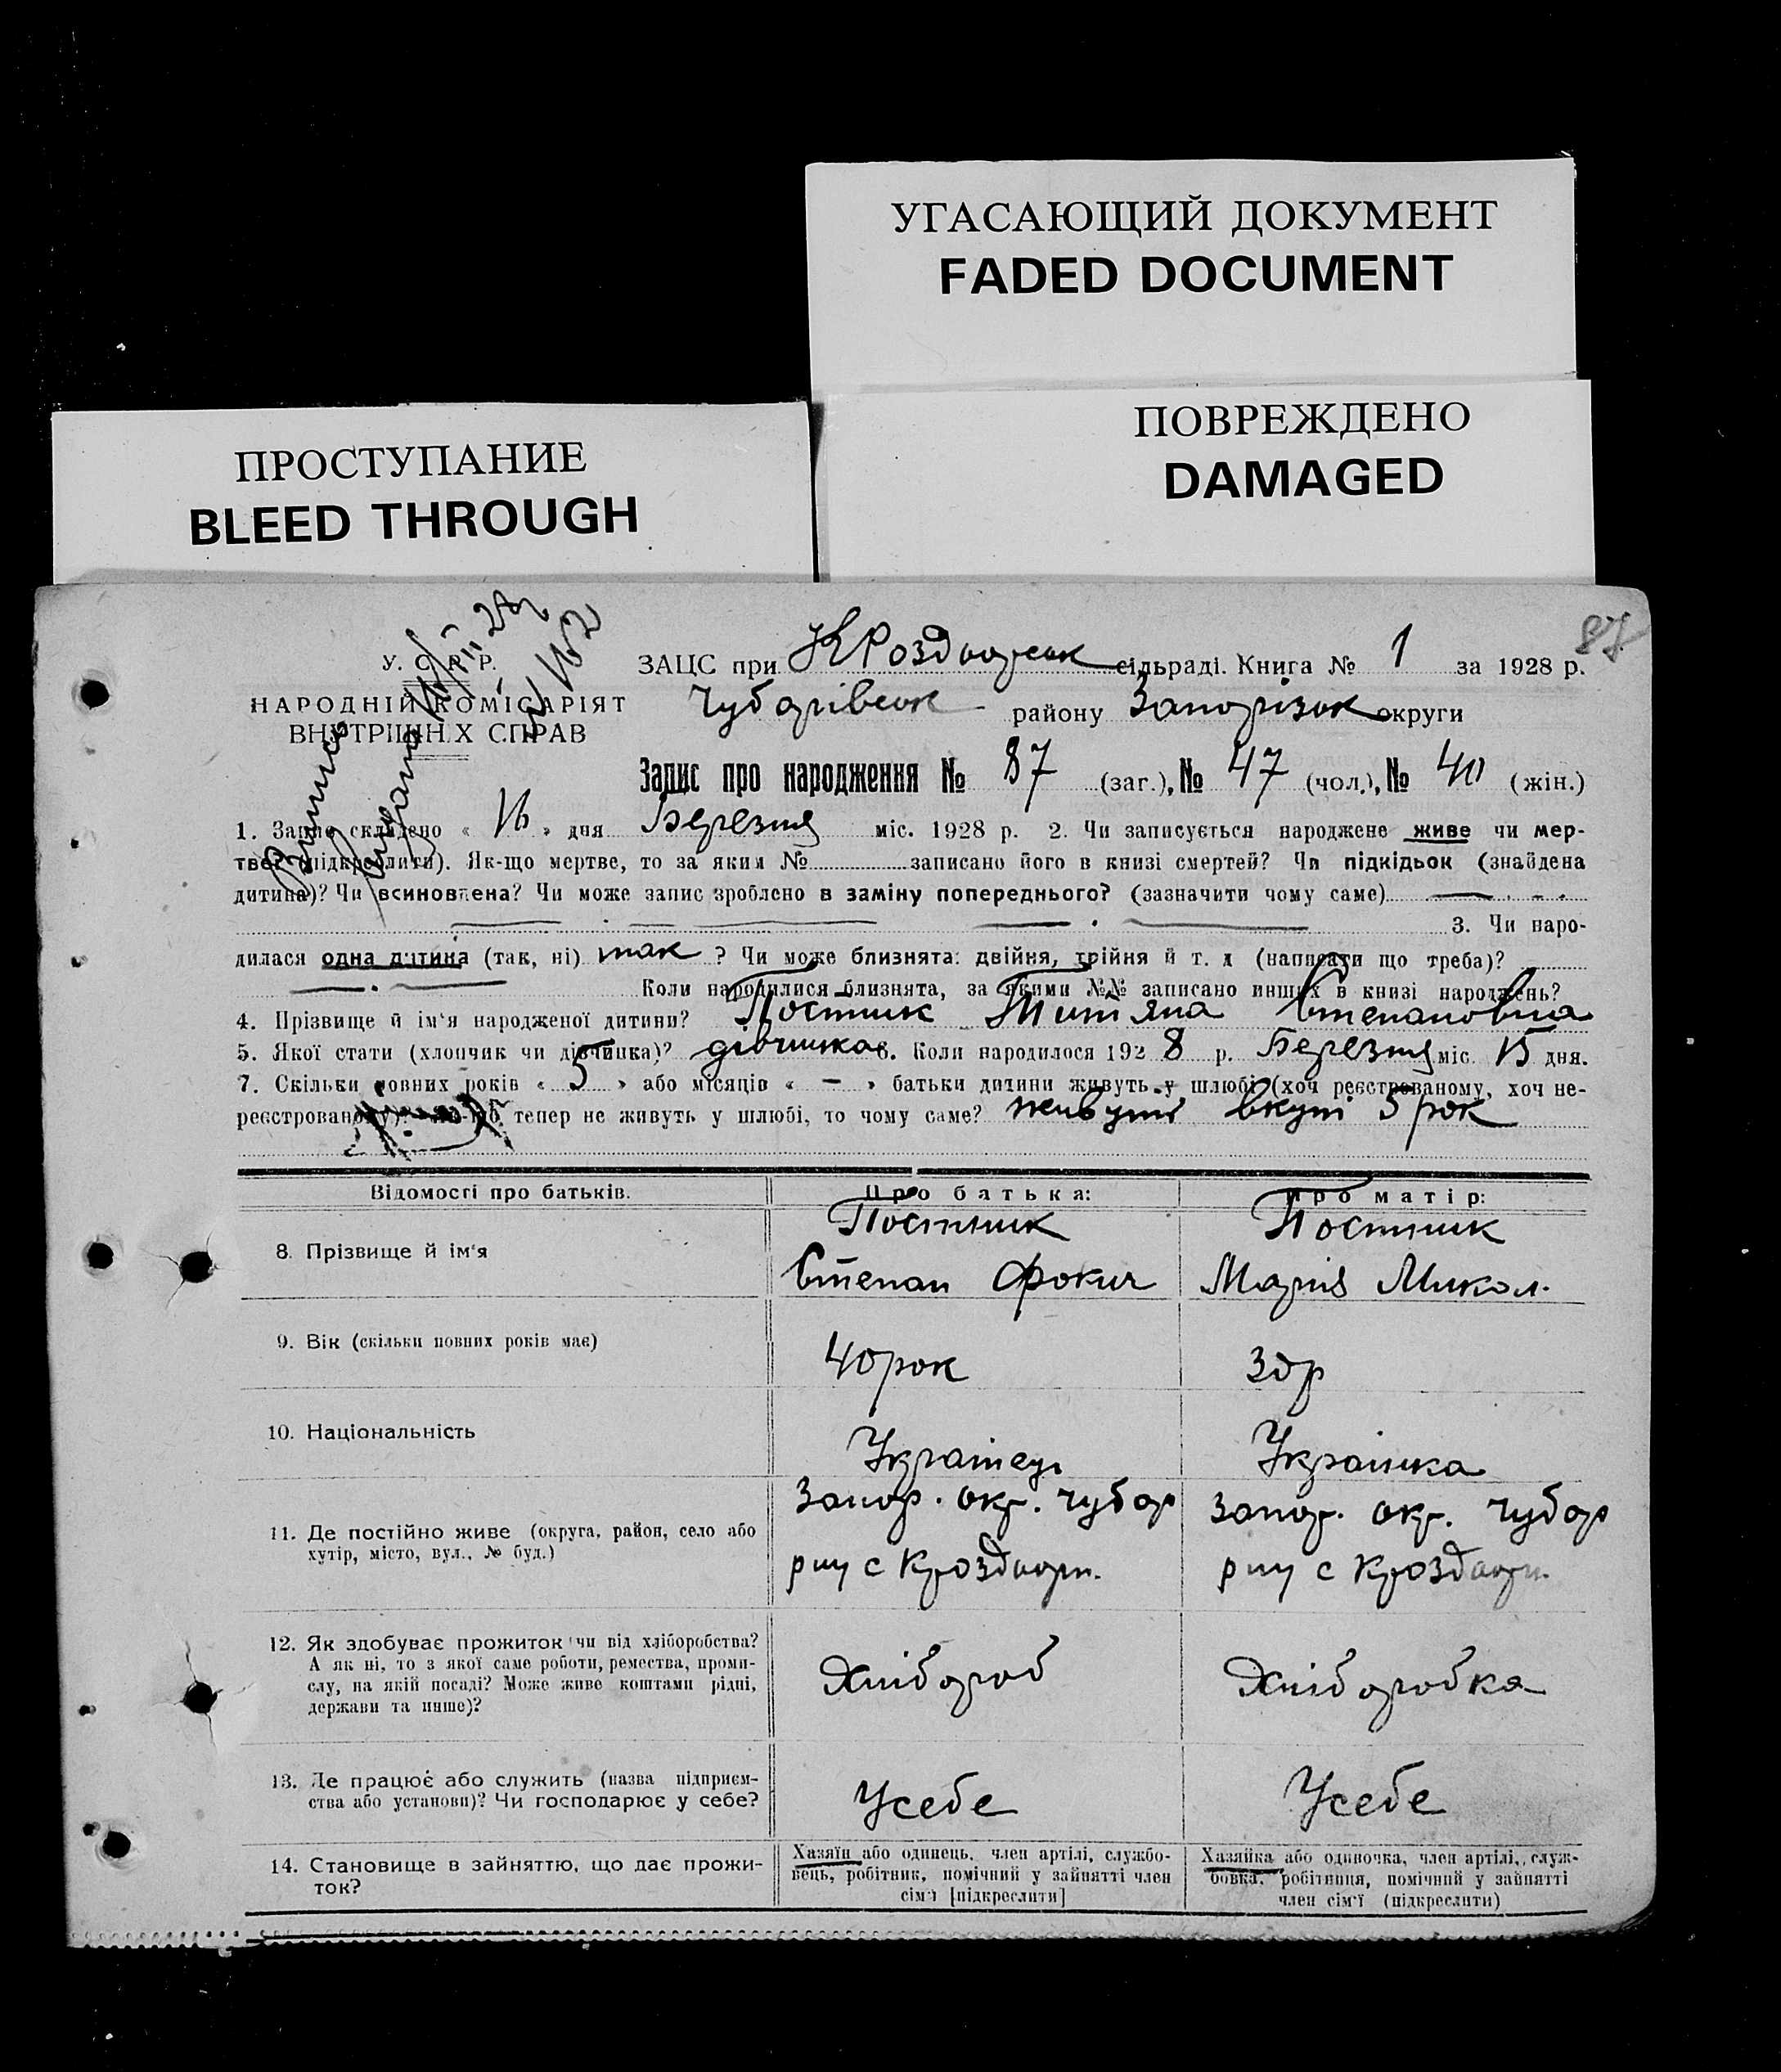 УГАСАЮЩИЙ ДОКУМЕНТ
FADED DOCUMENT
ПОВРЕЖДЕНО
DAMAGED
ПРОСТУПАНИЕ
BLEED THROUGH
87
У. С. Р. Р.
НАРОДНІЙ КОМІСАРІЯТ
ВНУТРІШНІХ СПРАВ
ЗАЦС при сільраді. Книга № 1 за 1928 р.
Чубарівськ району Запорізьк округи
Запис про народження № 87 (заг.), № 47 (чол.), № 40 (жін.)
1. Запис складено « 16 » дня Березня міс. 1928 р. 2. Чи записується народжене живе чи мер-
тве (підкреслити). Як-що мертве, то за яким № записано його в книзі смертей? Чи підкідьок (знайдена
дитина)? Чи всиновлена? Чи може запис зроблено в заміну попереднього? (зазначити чому саме)
3. Чи наро-
дилася одна дитина (так, ні) так ? Чи може близнята: двійня, трійня й т. д (написати що треба)?
Коли народилися близнята, за якими №№ записано инших в книзі народжень?
4. Прізвище й ім'я народженої дитини? Постник Титяна Степановна
5. Якої стати (хлопчик чи дівчинка)? дівчинка 6. Коли народилося 1928 р. Березня міс. 15 дня.
7. Скільки повних років « 5 » або місяців « – » батьки дитини живуть у шлюбі (хоч реєстрованому, хоч не-
реєстрованому)? Як-що тепер не живуть у шлюбі, то чому саме? живуть вкупі 5 рок
Відомості про батьків.
Про батька:
Про матір:
8. Прізвище й ім'я
Постник
Степан Фокич
Постник
Марія Микол.
9. Вік (скільки повних років має)
40 рок
30 р
10. Національність
Українец
Українка
11. Де постійно живе (округа, район, село або
хутір, місто, вул., № буд.)
Запор. окр. Чубар
рну с Кроздорн.
Запор. окр. Чубар
рну с Кроздорн.
12. Як здобуває прожиток чи від хліборобства?
А як ні, то з якої саме роботи, ремества, проми-
слу, на якій посаді? Може живе коштами рідні,
держави та инше)?
Хлібороб
Хліборобка
13. Де працює або служить (назва підприєм-
ства або установи)? Чи господарює у себе?
Усебе
Усебе
14. Становище в зайняттю, що дає прожи-
ток?
Хазяїн або одинець, член артілі, службо-
вець, робітник, помічний у зайнятті член
сім'ї [підкреслити]
Хазяйка або одиночка, член артілі, служ-
бовка, робітниця, помічний у зайнятті
член сім'ї (підкреслити)